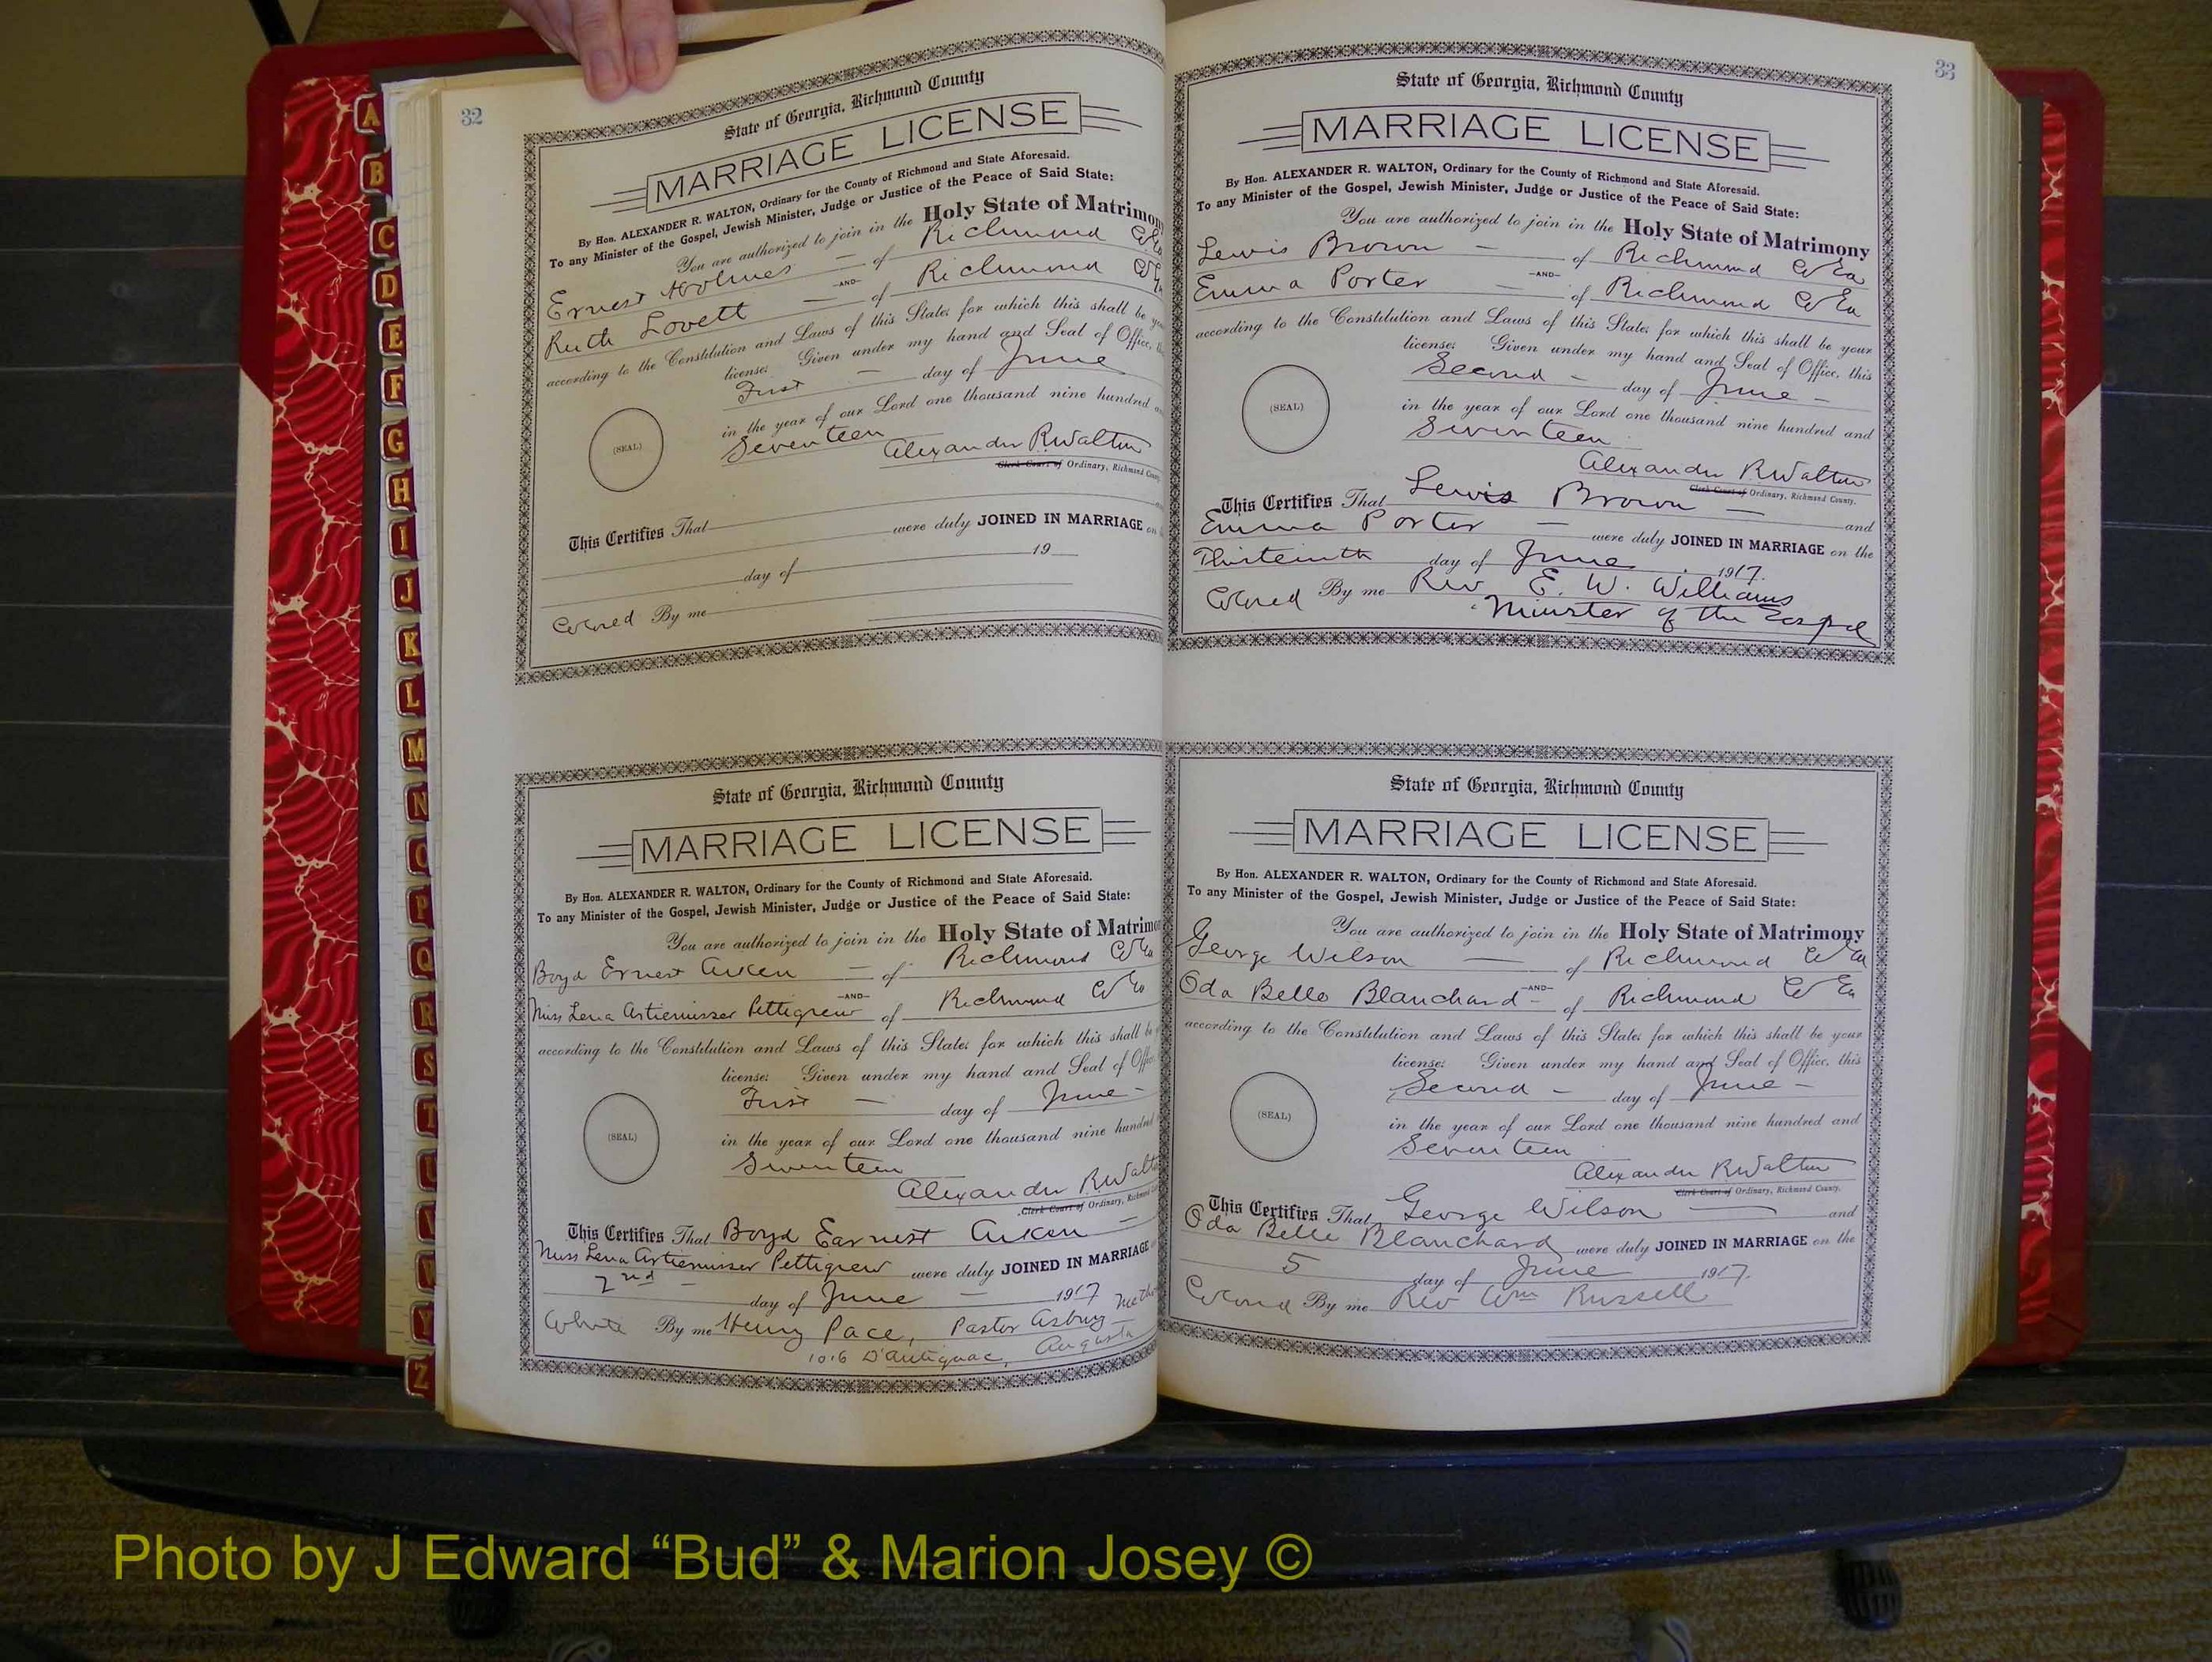 32
State of Georgia, Richmond County
MARRIAGE LICENSE
By Hon. ALEXANDER R. WALTON, Ordinary for the County of Richmond and State Aforesaid.
To any Minister of the Gospel, Jewish Minister, Judge or Justice of the Peace of Said State:
You are authorized to join in the Holy State of Matrimony
Ernest Holmes — of Richmond Co Ga
—AND—
Ruth Lovett — of Richmond Co Ga
according to the Constitution and Laws of this State; for which this shall be your
license: Given under my hand and Seal of Office,
First — day of June
in the year of our Lord one thousand nine hundred
(SEAL)
Seventeen
Alexander R Walton
Clerk Court of Ordinary, Richmond County
This Certifies That
were duly JOINED IN MARRIAGE on
day of 19
Colored By me
State of Georgia, Richmond County
MARRIAGE LICENSE
By Hon. ALEXANDER R. WALTON, Ordinary for the County of Richmond and State Aforesaid.
To any Minister of the Gospel, Jewish Minister, Judge or Justice of the Peace of Said State:
You are authorized to join in the Holy State of Matrimo
Boyd Ernest Aiken — of Richmond Co Ga
—AND—
Miss Lena Artiemisser Pettigrew of Richmond Co Ga
according to the Constitution and Laws of this State; for which this shall be
license: Given under my hand and Seal of Offic
First — day of June —
in the year of our Lord one thousand nine hundred
(SEAL)
Seventeen
Alexander R Walt
Clerk Court of Ordinary, Richmond
This Certifies That Boyd Earnest Aiken —
Miss Lena Artiemisser Pettigrew were duly JOINED IN MARRIAGE
2nd — day of June — 1917
White By me Henry Pace, Pastor Asbury Meth
1016 D'Antignac, Augusta
33
State of Georgia, Richmond County
MARRIAGE LICENSE
By Hon. ALEXANDER R. WALTON, Ordinary for the County of Richmond and State Aforesaid.
To any Minister of the Gospel, Jewish Minister, Judge or Justice of the Peace of Said State:
You are authorized to join in the Holy State of Matrimony
Lewis Brown — of Richmond Co Ga
—AND—
Emma Porter — of Richmond Co Ga
according to the Constitution and Laws of this State; for which this shall be your
license: Given under my hand and Seal of Office, this
Second — day of June —
in the year of our Lord one thousand nine hundred and
(SEAL)
Seventeen
Alexander R Walton
Clerk Court of Ordinary, Richmond County.
This Certifies That Lewis Brown — and
Emma Porter — were duly JOINED IN MARRIAGE on the
Thirteinth day of June 1917.
Colored By me Rev E. W. Williams
Minister of the Gospel
State of Georgia, Richmond County
MARRIAGE LICENSE
By Hon. ALEXANDER R. WALTON, Ordinary for the County of Richmond and State Aforesaid.
To any Minister of the Gospel, Jewish Minister, Judge or Justice of the Peace of Said State:
You are authorized to join in the Holy State of Matrimony
George Wilson — of Richmond Co Ga
—AND—
Oda Belle Blanchard — of Richmond Co Ga
according to the Constitution and Laws of this State; for which this shall be your
license: Given under my hand and Seal of Office, this
Second — day of June —
in the year of our Lord one thousand nine hundred and
(SEAL)
Seventeen
Alexander R Walton
Clerk Court of Ordinary, Richmond County.
This Certifies That George Wilson — and
Oda Belle Blanchard were duly JOINED IN MARRIAGE on the
5 day of June 1917.
Colored By me Rev Wm Russell
A
B
C
D
E
F
G
H
I
J
K
L
M
N
O
P
Q
R
S
T
U
V
W
Y
Z
Photo by J Edward “Bud” & Marion Josey ©